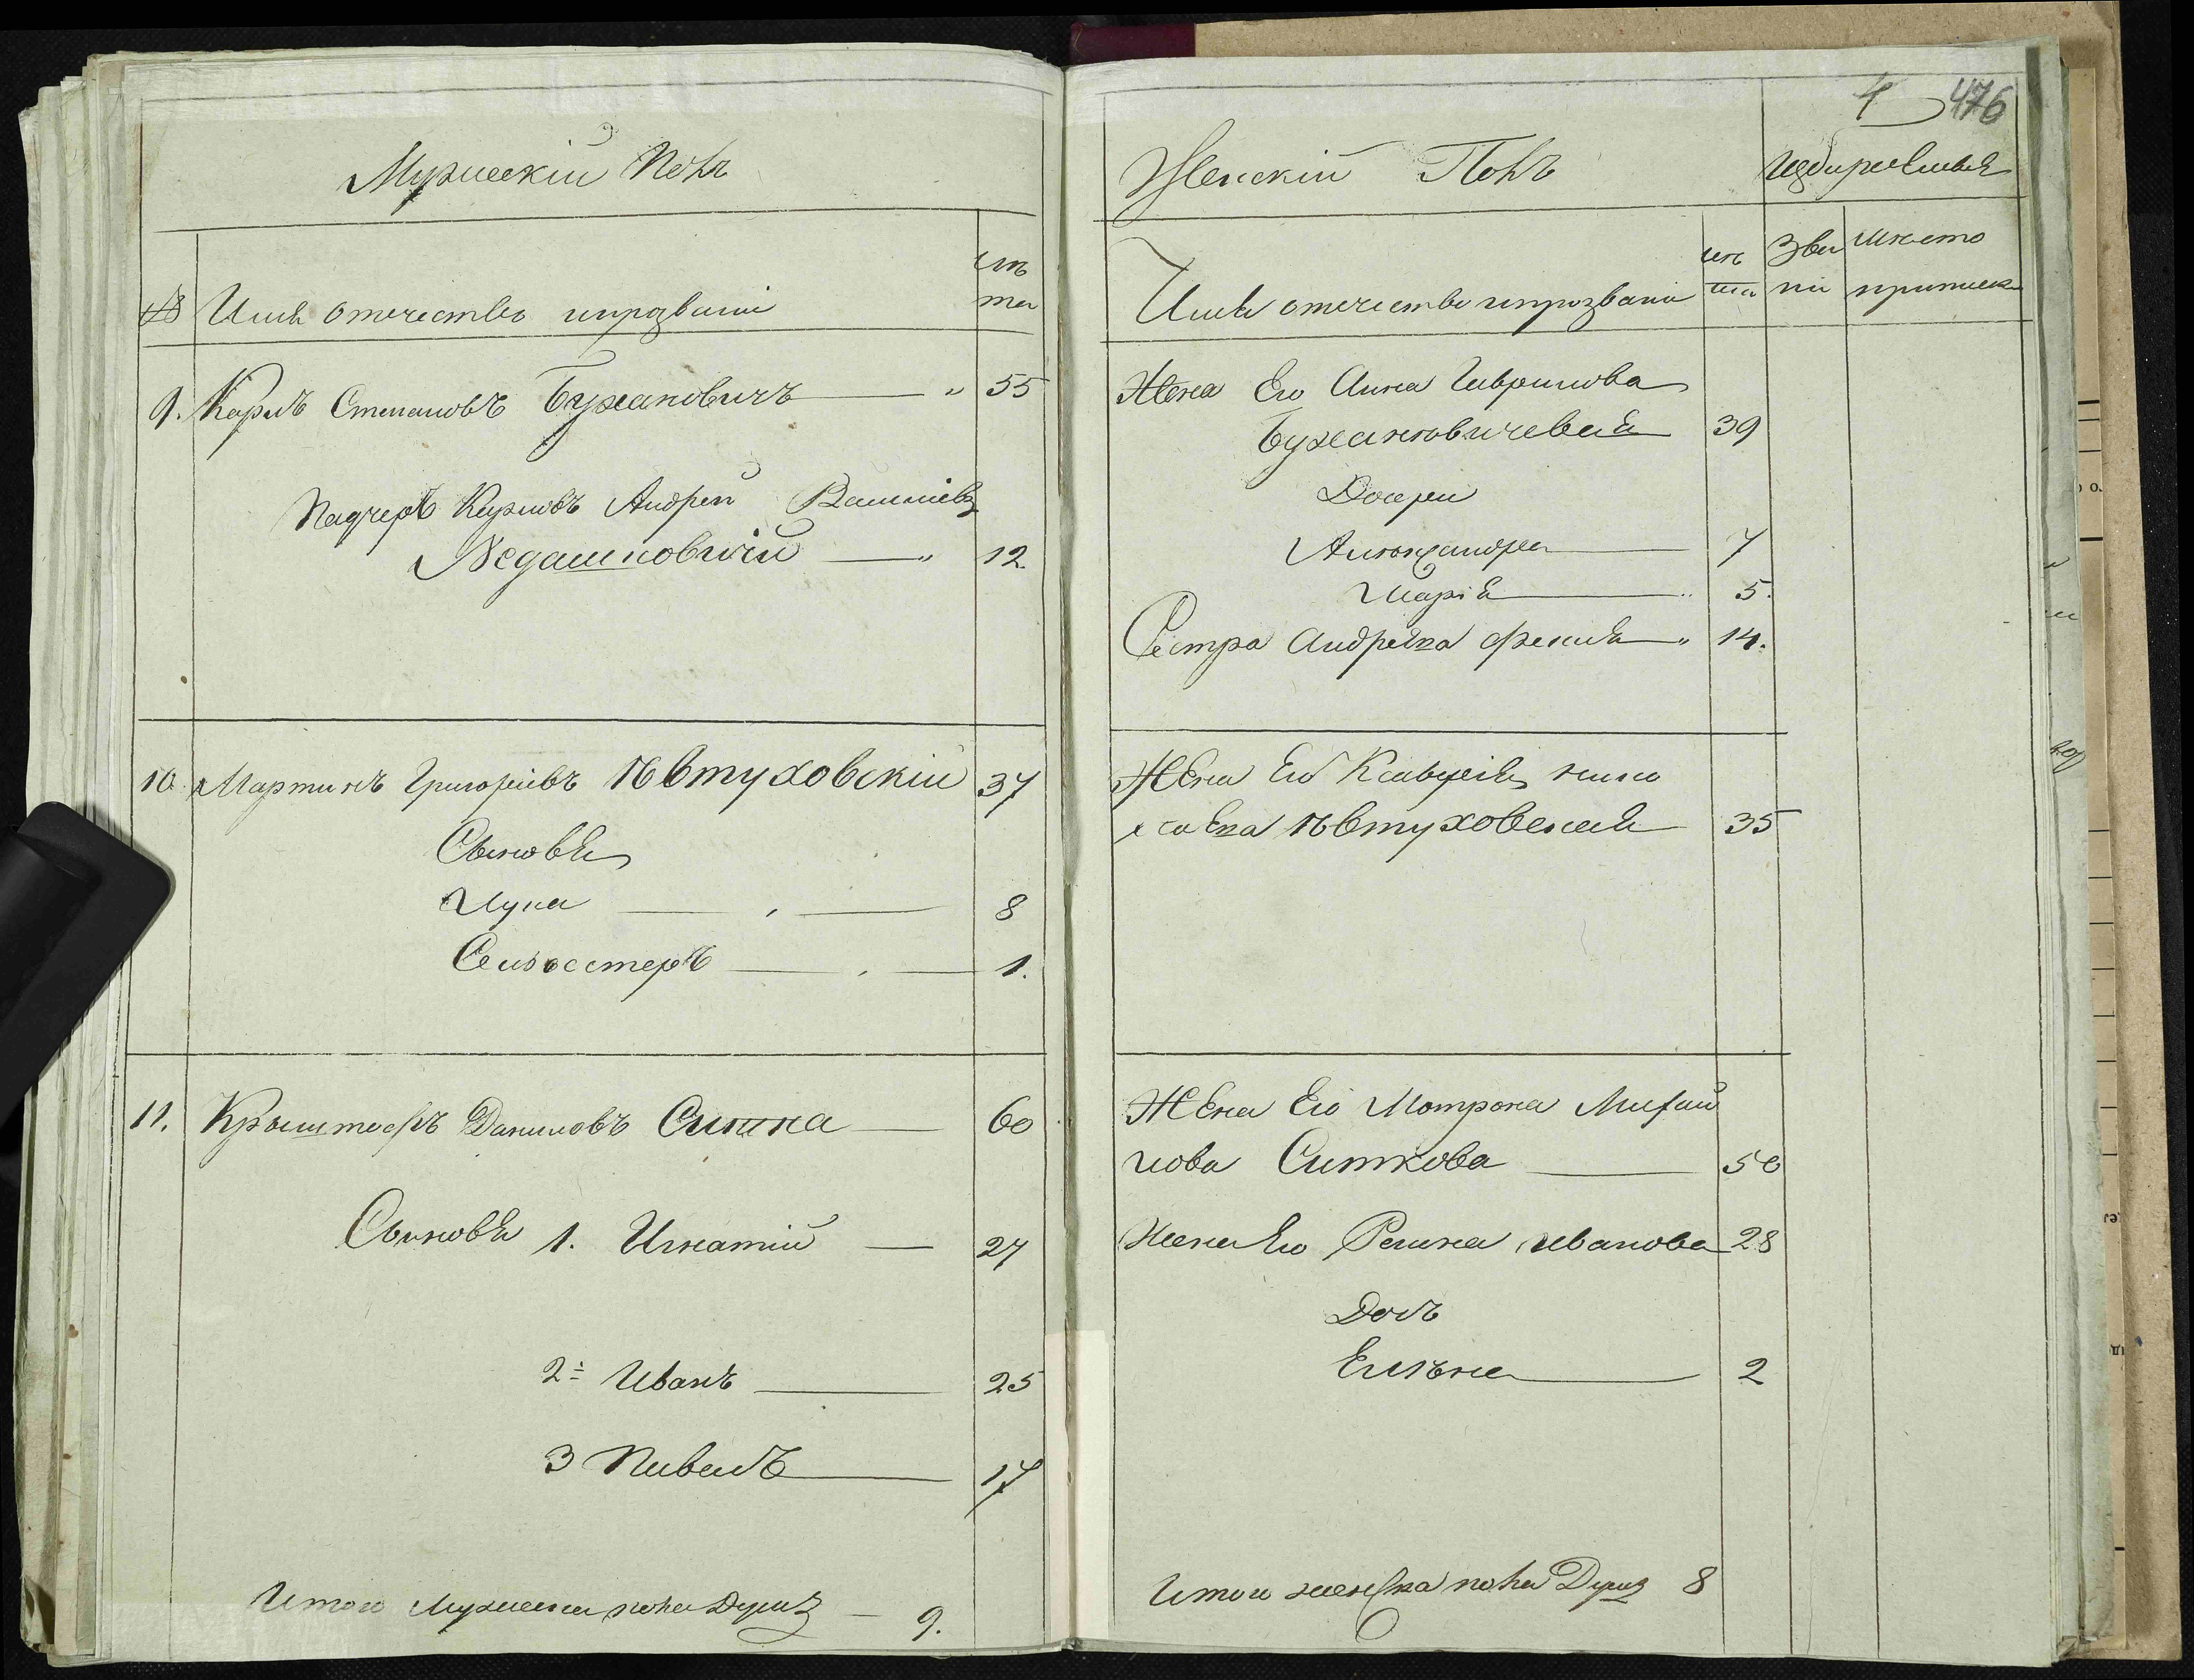 Мужескій Полъ
№ Имя отечество ипрозваніе лѣ та
9. Карлъ Степановъ Бужановичъ 55
Падчеръ Карловъ Андрей
Недашковскій 12
10. Мартинъ Григоріевъ Пѣтуховскій 37
Сыновья
Лука 8
Сельвестеръ 1.
11. Крыштофъ Даниловъ Ситка 60
Сыновья 1. Игнатій 27
2 Иванъ 25
3 Павелъ 17
Итого Мужеска пола Душъ 9.
4 476
Женскій Полъ
Имя отечество ипрозвані лѣ та Зва ни Мѣсто приписк
Жена Его Анна Гаврилова
Бужановичевая 39
Дочери
Александра 7
Марія 5.
Сестра Андрея 14.
Жена Его
Пѣтуховская 35
Жена Его Мотрона Михай
лова Ситкова 50
Жена Его Иванова 28
Дочь
Елѣна 2
Итого женска пола Душъ 8